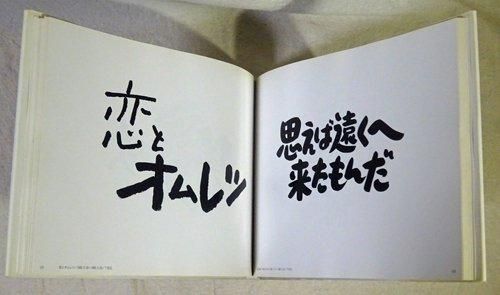 恋と
オムレツ
思えば遠くへ
来たもんだ